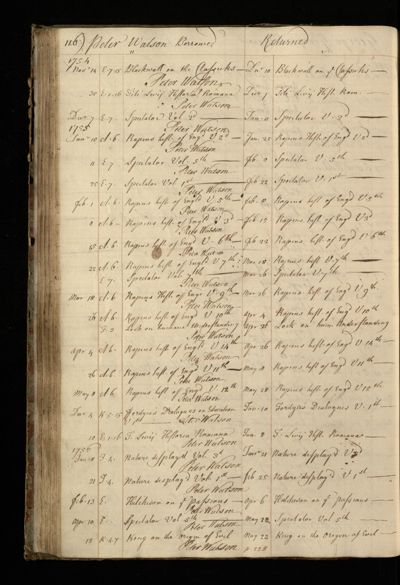 126) Peter Watson Borrowed Returned
1754
Nov 14 E.7.15 Blackwall on the Classicks Dec 10 Blackwall on ye Classicks
Peter Watson
20 E.1.16 Titi Livij Historia Romana Decr 7 Titi Livij Hist. Rom.
Peter Watson
Decr 7 E.7. Spectator Vol. 2d Jan 10 Spectator V. 2d
1755 Peter Watson
Jan 10 A.6. Rapins Hist. of Engd V 2d Jan 25 Rapins Hist. of Engd V 2d
Peter Watson
11 E.7 Spectator Vol 5th Feb 9 Spectator V. 5th
Peter Watson
25 E.7 Spectator Vol 1st Feb 22 Spectator V. 1st
Peter Watson
Feb 1 A.6 Rapins Hist of Engd V. 5th Feb 8 Rapins Hist of Engd V 5th
Peter Watson
8 A.6 Rapins Hist. of Engd V 3 Feb 15 Rapins Hist of Engd V 3
Peter Watson
15 A.6 Rapins Hist of Engd V. 6th Feb 22 Rapins Hist. of Engd V 6th
Peter Watson
22 A.6 Rapins Hist of Engd V 7th Mar 18 Rapins Hist V 7th
E.7. Spectator Vol 7th Mar 26 Spectator V 7th
Peter Watson
Mar 18 A.6 Rapins Hist. of Engd V 9th Mar 26 Rapins Hist of Engd V 9th
Peter Watson
26 A.6 Rapins Hist of Engd V 10th Apr 4 Rapins Hist of Engd V 10th
Lock on human Understanding Apr 26 Lock on hum Understanding
Peter Watson
Apr 4 A.6 Rapins Hist of Engd V 14th Apr 26 Rapins Hist of Engd V 14th
Peter Watson
26 A.6 Rapins Hist of Engd V 11th May 8 Rapins Hist of Engd V 11th
Peter Watson
May 8 A.6 Rapins Hist of Engd V. 12th May 28 Rapins Hist of Engd V 12th
Peter Watson
Jun 4 K.5.15 Fordyces Dialogues on Education Jun 10 Fordyces Dialogues V. 1st
V. 1st Peter Watson
10 E.1.16 T. Livij Historia Romana Jan 8 T. Livij Hist. Romana
Peter Watson
1756
Jan 8 F.4. Nature display'd Vol. 3d Jany 21 Nature display'd V 3d
Peter Watson
21 F.4. Nature display'd Vol. 1st Feb 25 Nature display'd V 1st
Peter Watson
Feb 13 E. Hutchison on ye passions Apr 6 Hutchison on ye passions
Peter Watson
Apr 10 E. Spectator Vol 5th May 22 Spectator Vol 5th
Peter Watson
12 K.4.7 King on the Origin of Evil May 22 King on the Origin of Evil
Peter Watson p. 228